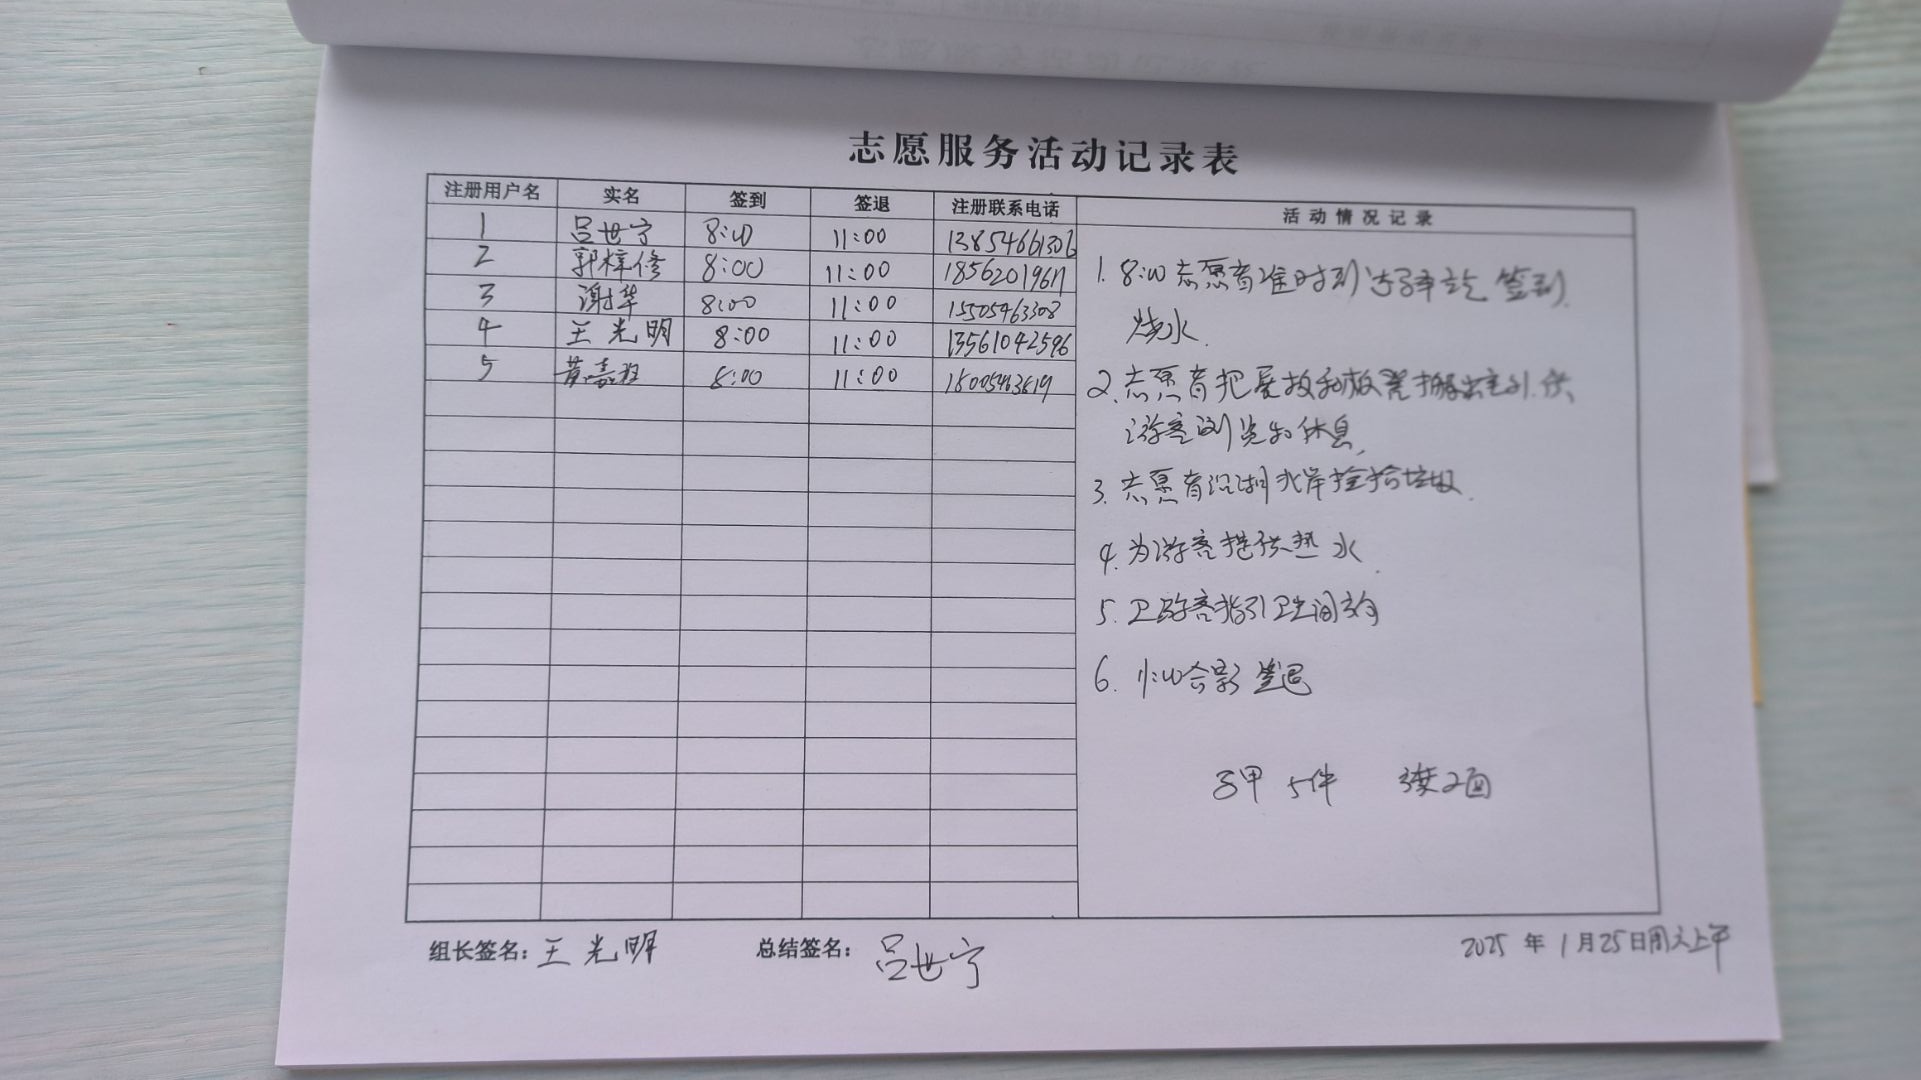 志愿服务活动记录表
注册用户名 实名 签到 签退 注册联系电话 活动情况记录
1 吕世宁 8:00 11:00 13854661306
2 郭梓修 8:00 11:00 18562019611
3 谢华 8:00 11:00 15505463308
4 王光明 8:00 11:00 13561042596
5 黄嘉 8:00 11:00 18005463619
1. 8:00志愿者准时到 签到.
烧水.
2.志愿者把展板和板凳搬出 供
游客浏览和休息,
3.志愿者沿湖北岸捡拾垃圾.
4.为游客提供热水.
5.卫 客指引卫生间方向
6. 11:00合影签退
马甲 5件 旗2面
组长签名: 王光明 总结签名: 吕世宁 2025年1月25日周六上午